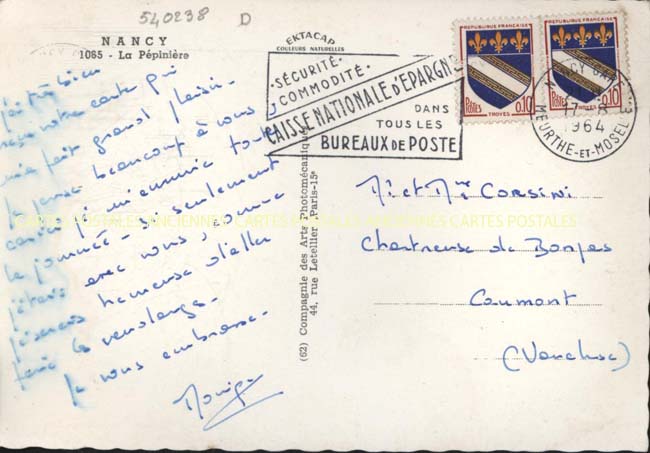 540238 D
NANCY
1085 - La Pépinière
EKTACAP
COULEURS NATURELLES
SÉCURITÉ
COMMODITÉ
CAISSE NATIONALE D'ÉPARGNE
DANS
TOUS LES
BUREAUX DE POSTE
REPUBLIQUE FRANÇAISE
POSTES 0,10
TROYES
REPUBLIQUE FRANÇAISE
0,10
TROYES
NANCY GARE
17
1964
MEURTHE-ET-MOSELLE
J'ai très bien
reçu votre carte qui
m'a fait grand plaisir.
Je pense beaucoup à vous
car je m'ennuie toute
la journée - si seulement
j'étais avec vous, comme
je serais heureuse d'aller
faire les vendanges.
Je vous embrasse.
Monique
(62) Compagnie des Arts Photomécaniques
44, rue Letellier, Paris-15e
Mr et Mme CORSINI
Chartreuse de Bonpas
Caumont
(Vaucluse)
CARTES POSTALES ANCIENNES CARTES POSTALES ANCIENNES CARTES POSTALES